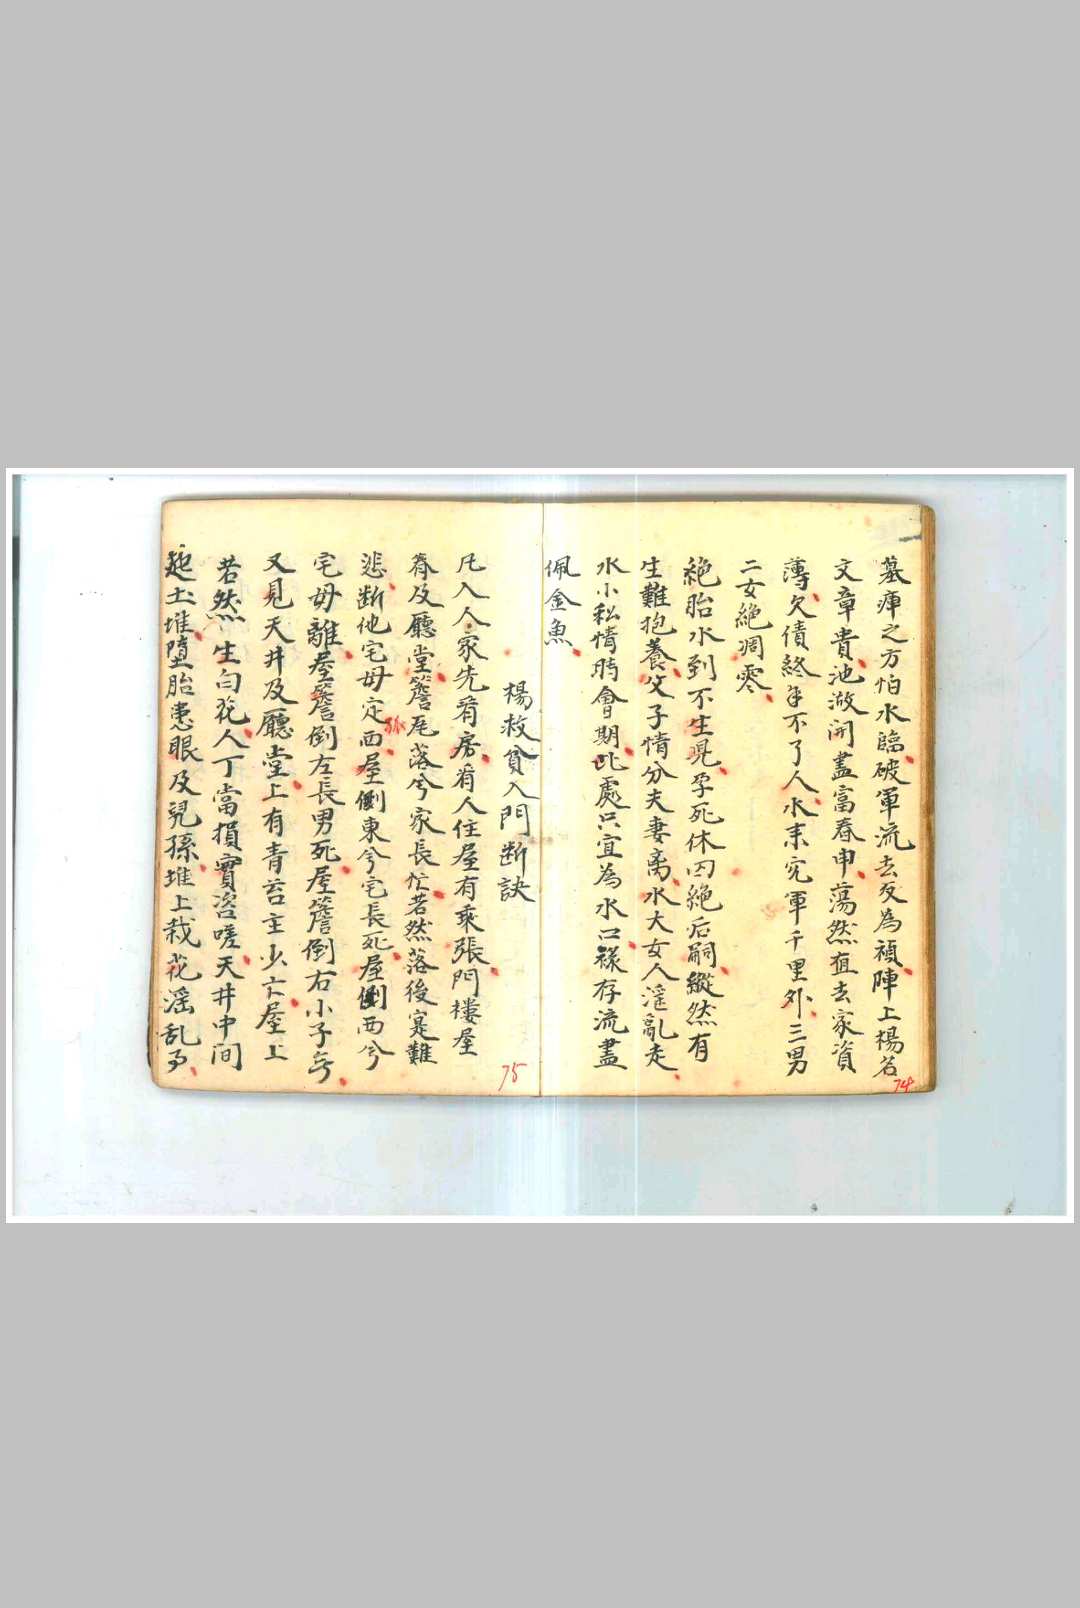 墓庫之方怕水臨破軍流去反為禎陣上楊名
文章貴池湖開盡富春申蕩然直去家資
薄欠債終年不了人水來兗軍千里外三男
二女絕凋零
絕胎水到不生兒孕死休囚絕后嗣縱然有
生難抱養父子情分夫妻离水大女人淫亂走
水小私情時會期此處只宜為水口祿存流盡
佩金魚
74
楊救貧入門断訣
凡入人家先看房看人住屋有乘張門樓屋
脊及廳堂簷尾落兮家長忙若然落後寔難
悲断他宅母定西屋倒東兮宅長死屋倒西兮
宅毋離屋簷倒左長男死屋簷倒右小子兮
又見天井及廳堂上有青苔主少亡屋上
若然生白花人丁當損實咨嗟天井中间
起土堆墮胎患眼及兒孫堆上栽花淫乱事
75